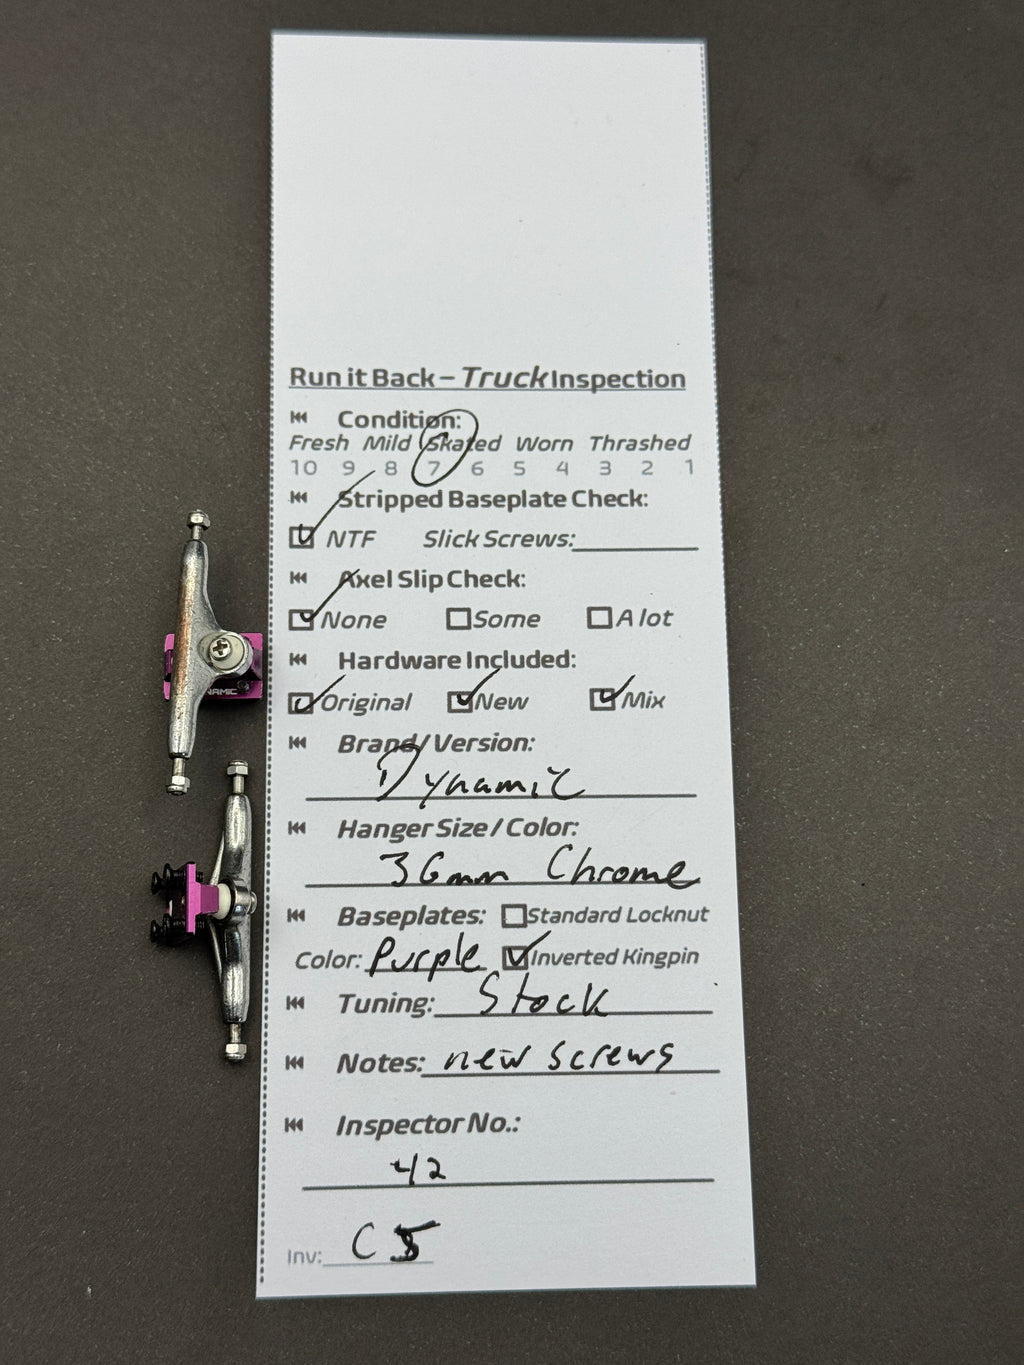 Run it Back – Truck Inspection
Condition:
Fresh Mild Skated Worn Thrashed
10 9 8 7 6 5 4 3 2 1
Stripped Baseplate Check:
NTF Slick Screws:
Axel Slip Check:
None Some A lot
Hardware Included:
Original New Mix
Brand/Version:
Dynamic
Hanger Size/Color:
36mm Chrome
Baseplates: Standard Locknut
Color: Purple Inverted Kingpin
Tuning: Stock
Notes: new screws
Inspector No.:
42
Inv: C